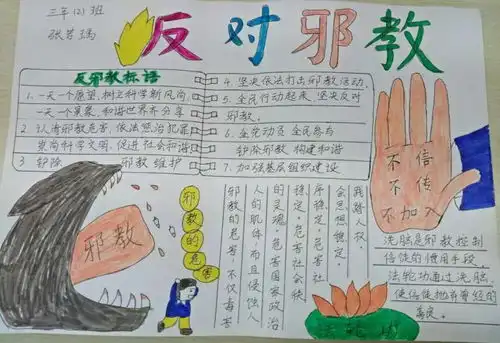 三年(2)班
张若瑶
反对邪教
反邪教标语
1、一天一个愿望,树立科学新风尚,
一天一个果实,和谐世界齐分享
2 认清邪教危害,依法惩治犯罪
崇尚科学文明,促进社会和谐
3 铲除 邪教 维护
4、坚决依法打击邪教活动,
5、全民行动起来,坚决反对
邪教。
6、全党动员 全民参与
铲除邪教 构建和谐
7、加强基层组织建设
不信
不传
不加入
邪教
邪教的危害
邪教的危害,不仅毒害
人的肌体,而且侵蚀人
的灵魂,危害国家政治
稳定,危害社会秩
序稳定,危害社
会思想稳定,
践踏人权。
洗脑是邪教控制
信徒的惯用手段,
法轮功通过洗脑,
使信徒抛弃曾经的
善良。